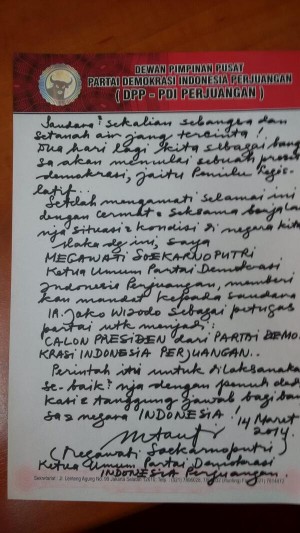 DEWAN PIMPINAN PUSAT
PARTAI DEMOKRASI INDONESIA PERJUANGAN
( DPP - PDI PERJUANGAN )
Saudara² sekalian sebangsa dan
setanah air jang tercinta !
Dua hari lagi kita sebagai bang
sa akan memulai sebuah proses
demokrasi, jaitu Pemilu legis-
latif...
Setelah mengamati selama ini
dengan cermat & seksama berjalan
nja situasi & kondisi di negara kita
maka dg ini, saya
MEGAWATI SOEKARNOPUTRI
Ketua Umum Partai Demokrasi
Indonesia Perjuangan, memberi
kan mandat kepada saudara
IR. Joko Widodo sebagai petugas
partai utk menjadi:
CALON PRESIDEN dari PARTAI DEMO
KRASI INDONESIA PERJUANGAN..
Perintah ini untuk dilaksanakan
se-baik² nja dengan penuh dedi
kasi & tanggung jawab bagi bang
sa & negara INDONESIA !
14 Maret
2014.
(Megawati Soekarnoputri)
Ketua Umum Partai Demokrasi
INDONESIA Perjuangan.
Sekretariat: Jl. Lenteng Agung No. 99 Jakarta Selatan